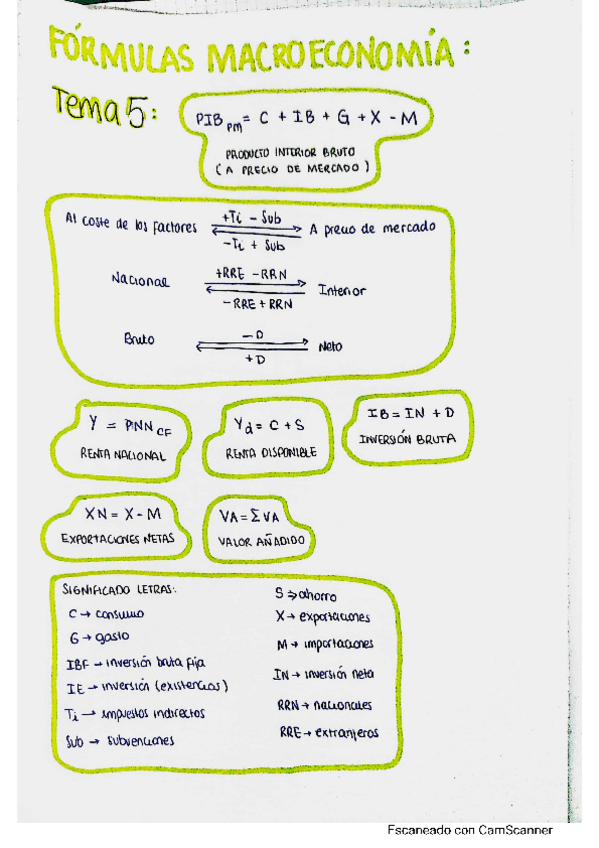 FÓRMULAS MACROECONOMÍA:
Tema 5:
PIBpm = C + IB + G + X - M
PRODUCTO INTERIOR BRUTO
(A PRECIO DE MERCADO)
Al coste de los factores +Ti - Sub A precio de mercado
-Ti + Sub
Nacional +RRE -RRN Interior
-RRE + RRN
Bruto -D Neto
+D
Y = PNN CF
RENTA NACIONAL
Yd = C + S
RENTA DISPONIBLE
IB = IN + D
INVERSIÓN BRUTA
XN = X - M
EXPORTACIONES NETAS
VA = Σ VA
VALOR AÑADIDO
SIGNIFICADO LETRAS:
C → consumo
G → gasto
IBF → inversión bruta fija
IE → inversión (existencias)
Ti → impuestos indirectos
Sub → subvenciones
S → ahorro
X → exportaciones
M → importaciones
IN → inversión neta
RRN → nacionales
RRE → extranjeros
Escaneado con CamScanner